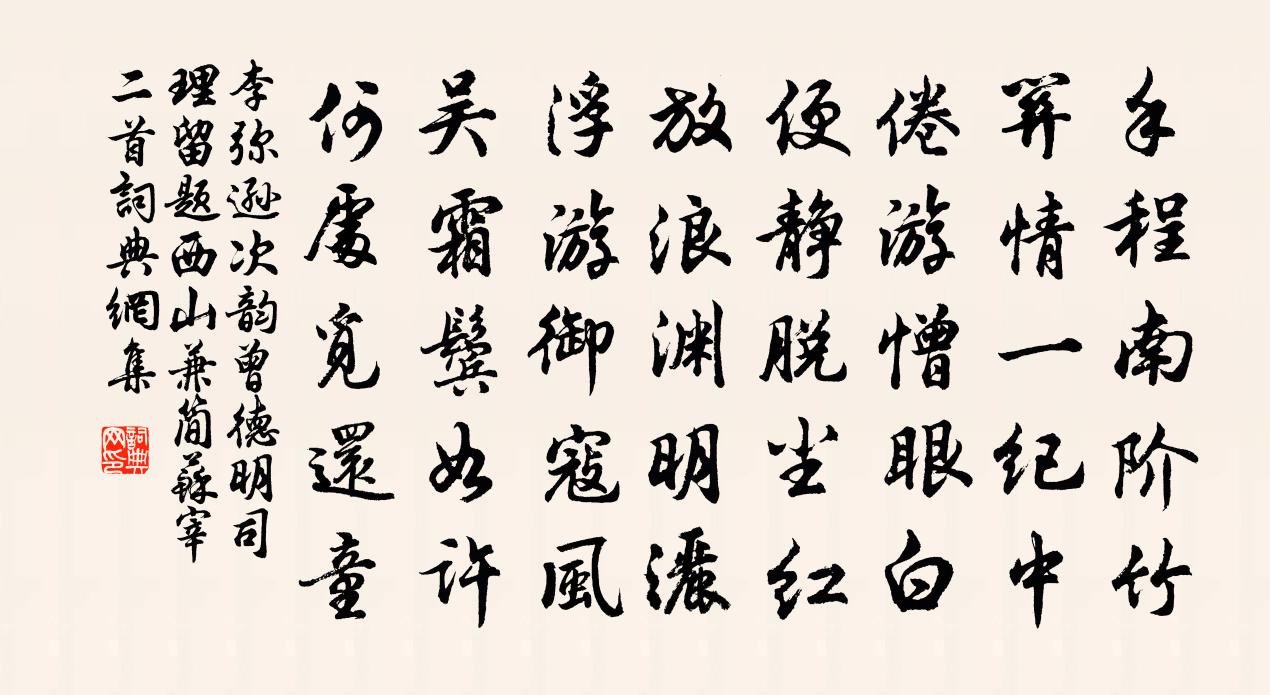 手程南阶竹
情一纪中
倦游憎眼白
便静脱尘红
放浪渊明灑
浮游御寇風
吴霜鬓如许
何處觅還童
李弥逊次韵曾德明司
理留题西山兼简蘇宰
二首詞典網集
詞典网印